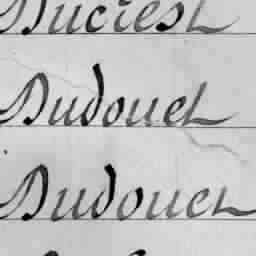 Ducrest
Dudouet
Dudouet